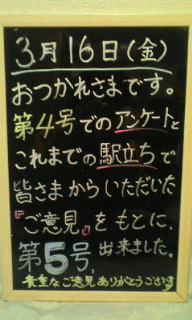 3月16日(金)
おつかれさまです。
第4号でのアンケートと
これまでの駅立ちで
皆さまからいただいた
『ご意見』をもとに、
第5号、出来ました。
貴重なご意見ありがとうございます